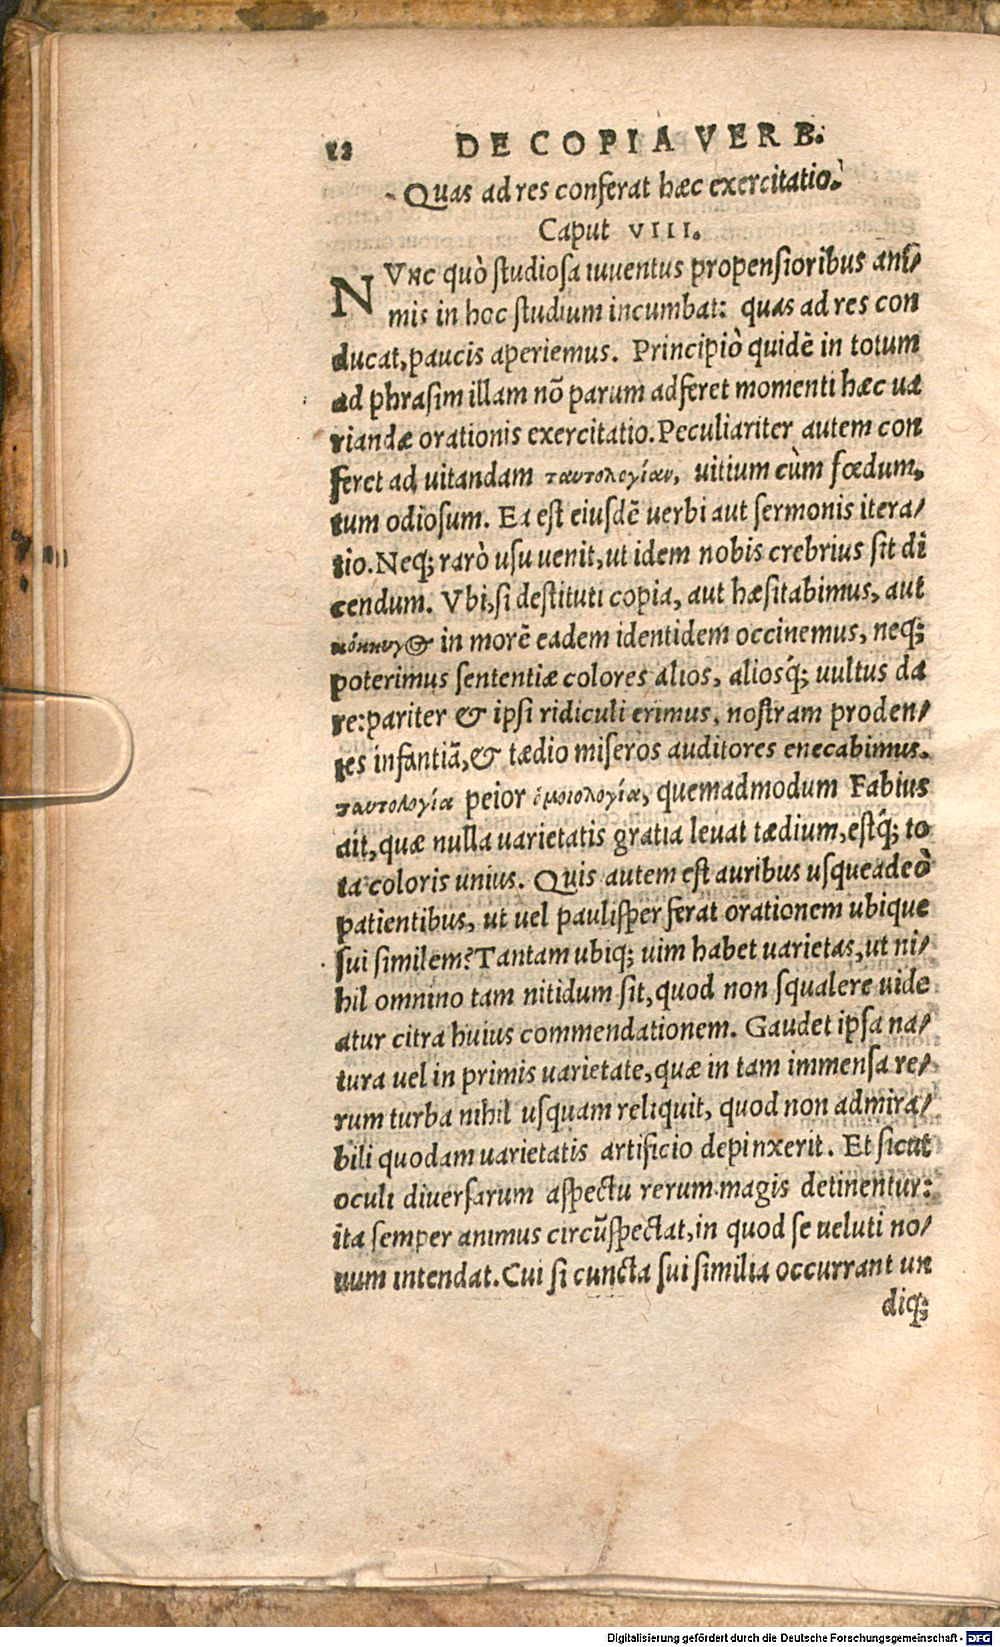 12 DE COPIA VERB.
Quas ad res conferat hæc exercitatio.
Caput VIII.
NVnc quò studiosa iuuentus propensioribus ani/
mis in hoc studium incumbat: quas ad res con
ducat, paucis aperiemus. Principiò quidē in totum
ad phrasim illam nō parum adferet momenti hæc ua
riandæ orationis exercitatio. Peculiariter autem con
feret ad uitandam ταυτολογίαν, uitium cùm fœdum,
tum odiosum. Ea est eiusdē uerbi aut sermonis itera/
tio. Neq; rarò usu uenit, ut idem nobis crebrius sit di
cendum. Vbi, si destituti copia, aut hæsitabimus, aut
κόκκυγ& in morē eadem identidem occinemus, neq;
poterimus sententiæ colores alios, aliosq́; uultus da
re: pariter & ipsi ridiculi erimus, nostram proden/
tes infantiā, & tædio miseros auditores enecabimus.
ταυτολογία peior ὁμοιολογία, quemadmodum Fabius
ait, quæ nulla uarietatis gratia leuat tædium, estq́; to
ta coloris unius. Quis autem est auribus usqueadeò
patientibus, ut uel paulisper ferat orationem ubique
sui similem? Tantam ubiq; uim habet uarietas, ut ni/
hil omnino tam nitidum sit, quod non squalere uide
atur citra huius commendationem. Gaudet ipsa na/
tura uel in primis uarietate, quæ in tam immensa re/
rum turba nihil usquam reliquit, quod non admira/
bili quodam uarietatis artificio depinxerit. Et sicut
oculi diuersarum aspectu rerum magis detinentur:
ita semper animus circūspectat, in quod se ueluti no/
uum intendat. Cui si cuncta sui similia occurrant un
diq;
Digitalisierung gefördert durch die Deutsche Forschungsgemeinschaft - DFG